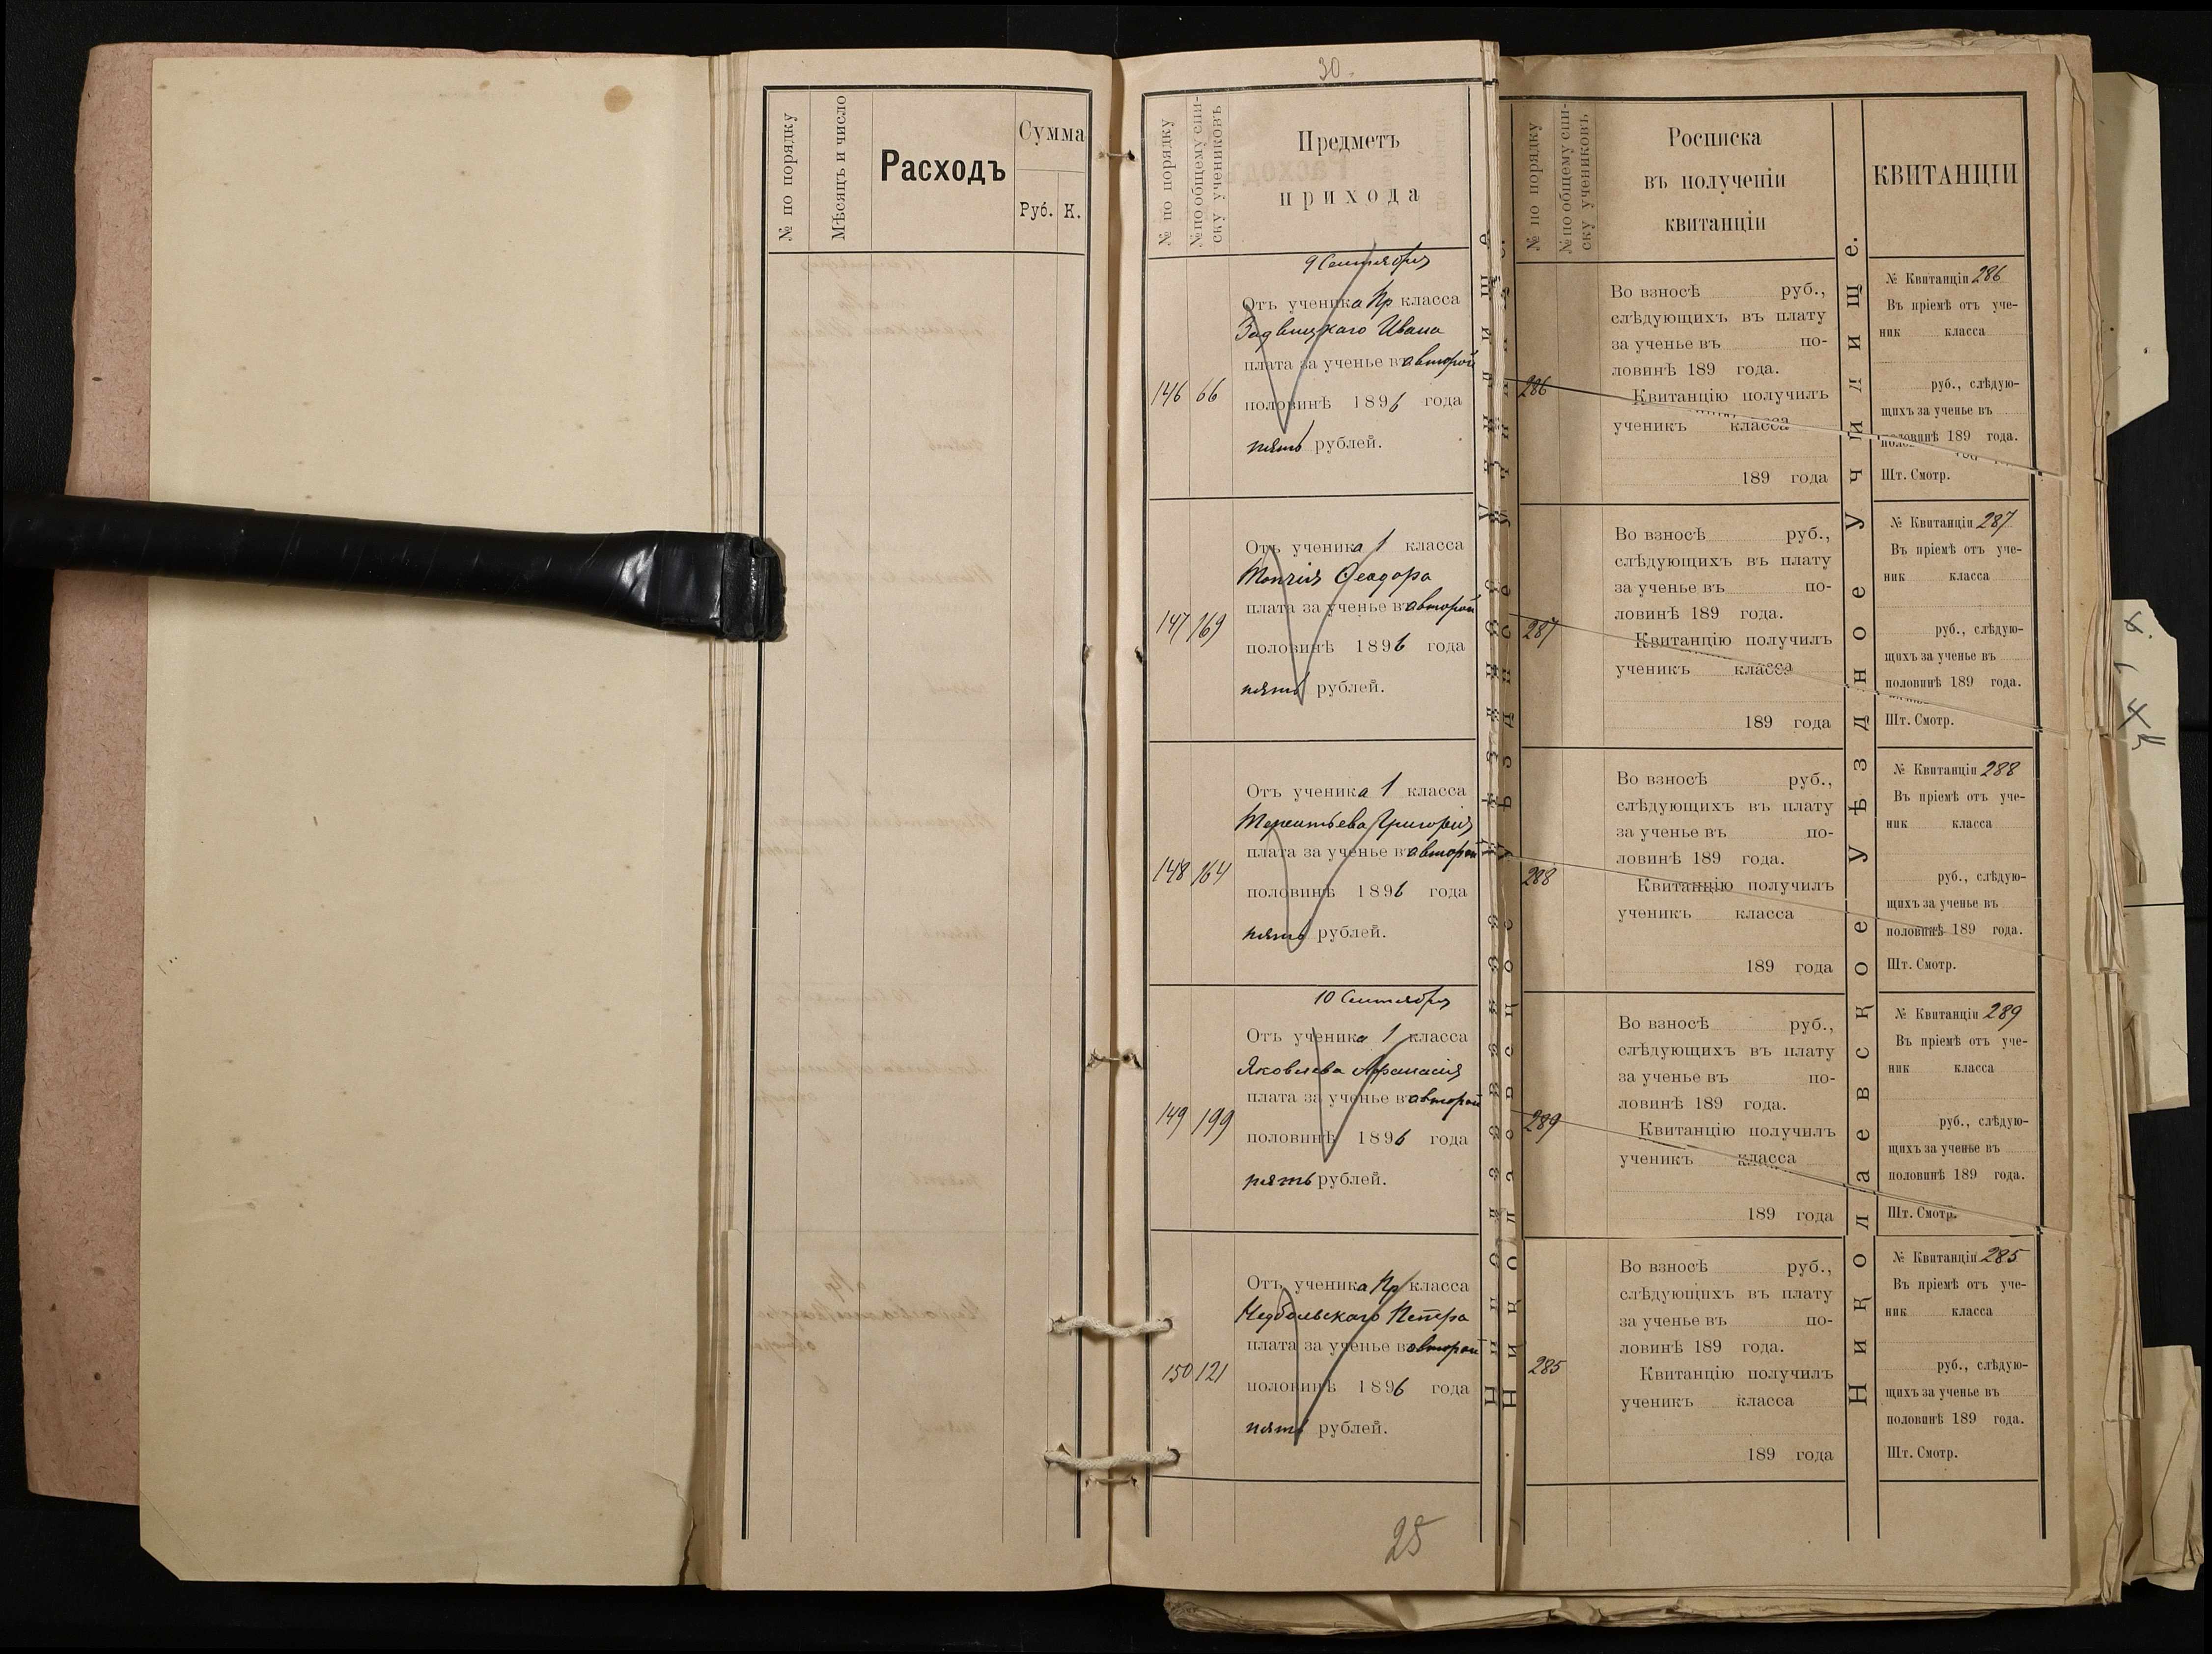 № по порядку
Мѣсяцъ и число
Расходъ
Сумма
Руб. К.
30
№ по порядку
№ по общему спи-
ску учениковъ
Предметъ
прихода
9 Сентября
Отъ ученика Пр класса
Ивана
плата за ученье въ второй
146 66
половинѣ 1896 года
пять рублей.
Отъ ученика 1 класса
Феодора
плата за ученье въ второй
147 169
половинѣ 1896 года
пять рублей.
Отъ ученика 1 класса
Терентьева Григорія
плата за ученье въ второй
148 164
половинѣ 1896 года
пять рублей.
10 Сентября
Отъ ученика 1 класса
Яковлева Афанасія
плата за ученье въ второй
149 199
половинѣ 1896 года
пять рублей.
Отъ ученика Пр класса
Недбальскаго Петра
плата за ученье въ второй
150 121
половинѣ 1896 года
пять рублей.
25
№ по порядку
№ по общему спи-
ску учениковъ
Росписка
въ полученіи
квитанціи
286
Во взносѣ руб.,
слѣдующихъ въ плату
за ученье въ по-
ловинѣ 189 года.
Квитанцію получилъ
ученикъ класса
189 года
287
Во взносѣ руб.,
слѣдующихъ въ плату
за ученье въ по-
ловинѣ 189 года.
Квитанцію получилъ
ученикъ класса
189 года
288
Во взносѣ руб.,
слѣдующихъ въ плату
за ученье въ по-
ловинѣ 189 года.
Квитанцію получилъ
ученикъ класса
189 года
289
Во взносѣ руб.,
слѣдующихъ въ плату
за ученье въ по-
ловинѣ 189 года.
Квитанцію получилъ
ученикъ класса
189 года
285
Во взносѣ руб.,
слѣдующихъ въ плату
за ученье въ по-
ловинѣ 189 года.
Квитанцію получилъ
ученикъ класса
189 года
Николаевское Уѣздное Училище.
КВИТАНЦІИ
№ Квитанціи 286
Въ пріемѣ отъ уче-
ник класса
руб., слѣдую-
щихъ за ученье въ
половинѣ 189 года.
Шт. Смотр.
№ Квитанціи 287
Въ пріемѣ отъ уче-
ник класса
руб., слѣдую-
щихъ за ученье въ
половинѣ 189 года.
Шт. Смотр.
№ Квитанціи 288
Въ пріемѣ отъ уче-
ник класса
руб., слѣдую-
щихъ за ученье въ
половинѣ 189 года.
Шт. Смотр.
№ Квитанціи 289
Въ пріемѣ отъ уче-
ник класса
руб., слѣдую-
щихъ за ученье въ
половинѣ 189 года.
Шт. Смотр.
№ Квитанціи 285
Въ пріемѣ отъ уче-
ник класса
руб., слѣдую-
щихъ за ученье въ
половинѣ 189 года.
Шт. Смотр.